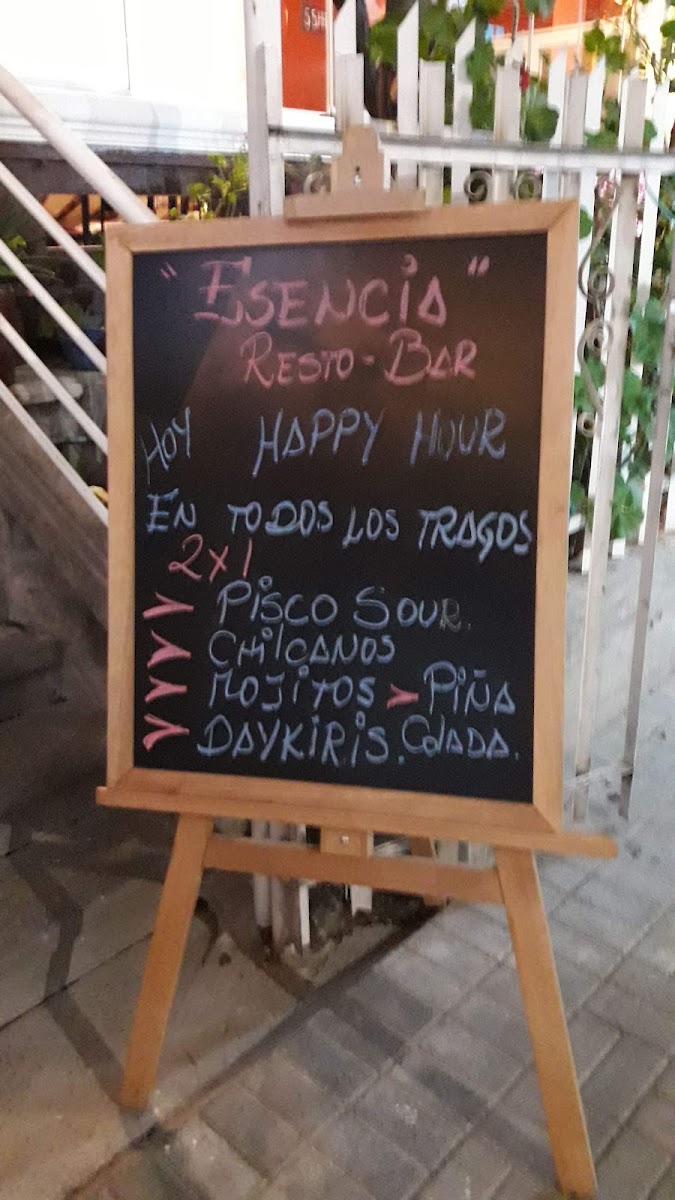 "ESENCIA"
RESTO-BAR
HOY HAPPY HOUR
EN TODOS LOS TRAGOS
2X1
PISCO SOUR.
CHILCANOS
MOJITOS PIÑA
DAYKIRIS. COLADA.